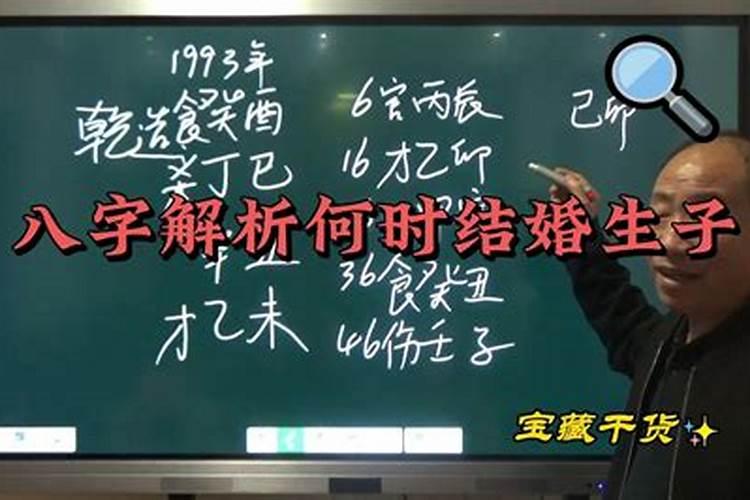 1993年
乾造食癸酉
杀丁巳
才乙未
6官丙辰
16才乙卯
36食癸丑
46伤壬子
己卯
八字解析何时结婚生子
宝藏干货